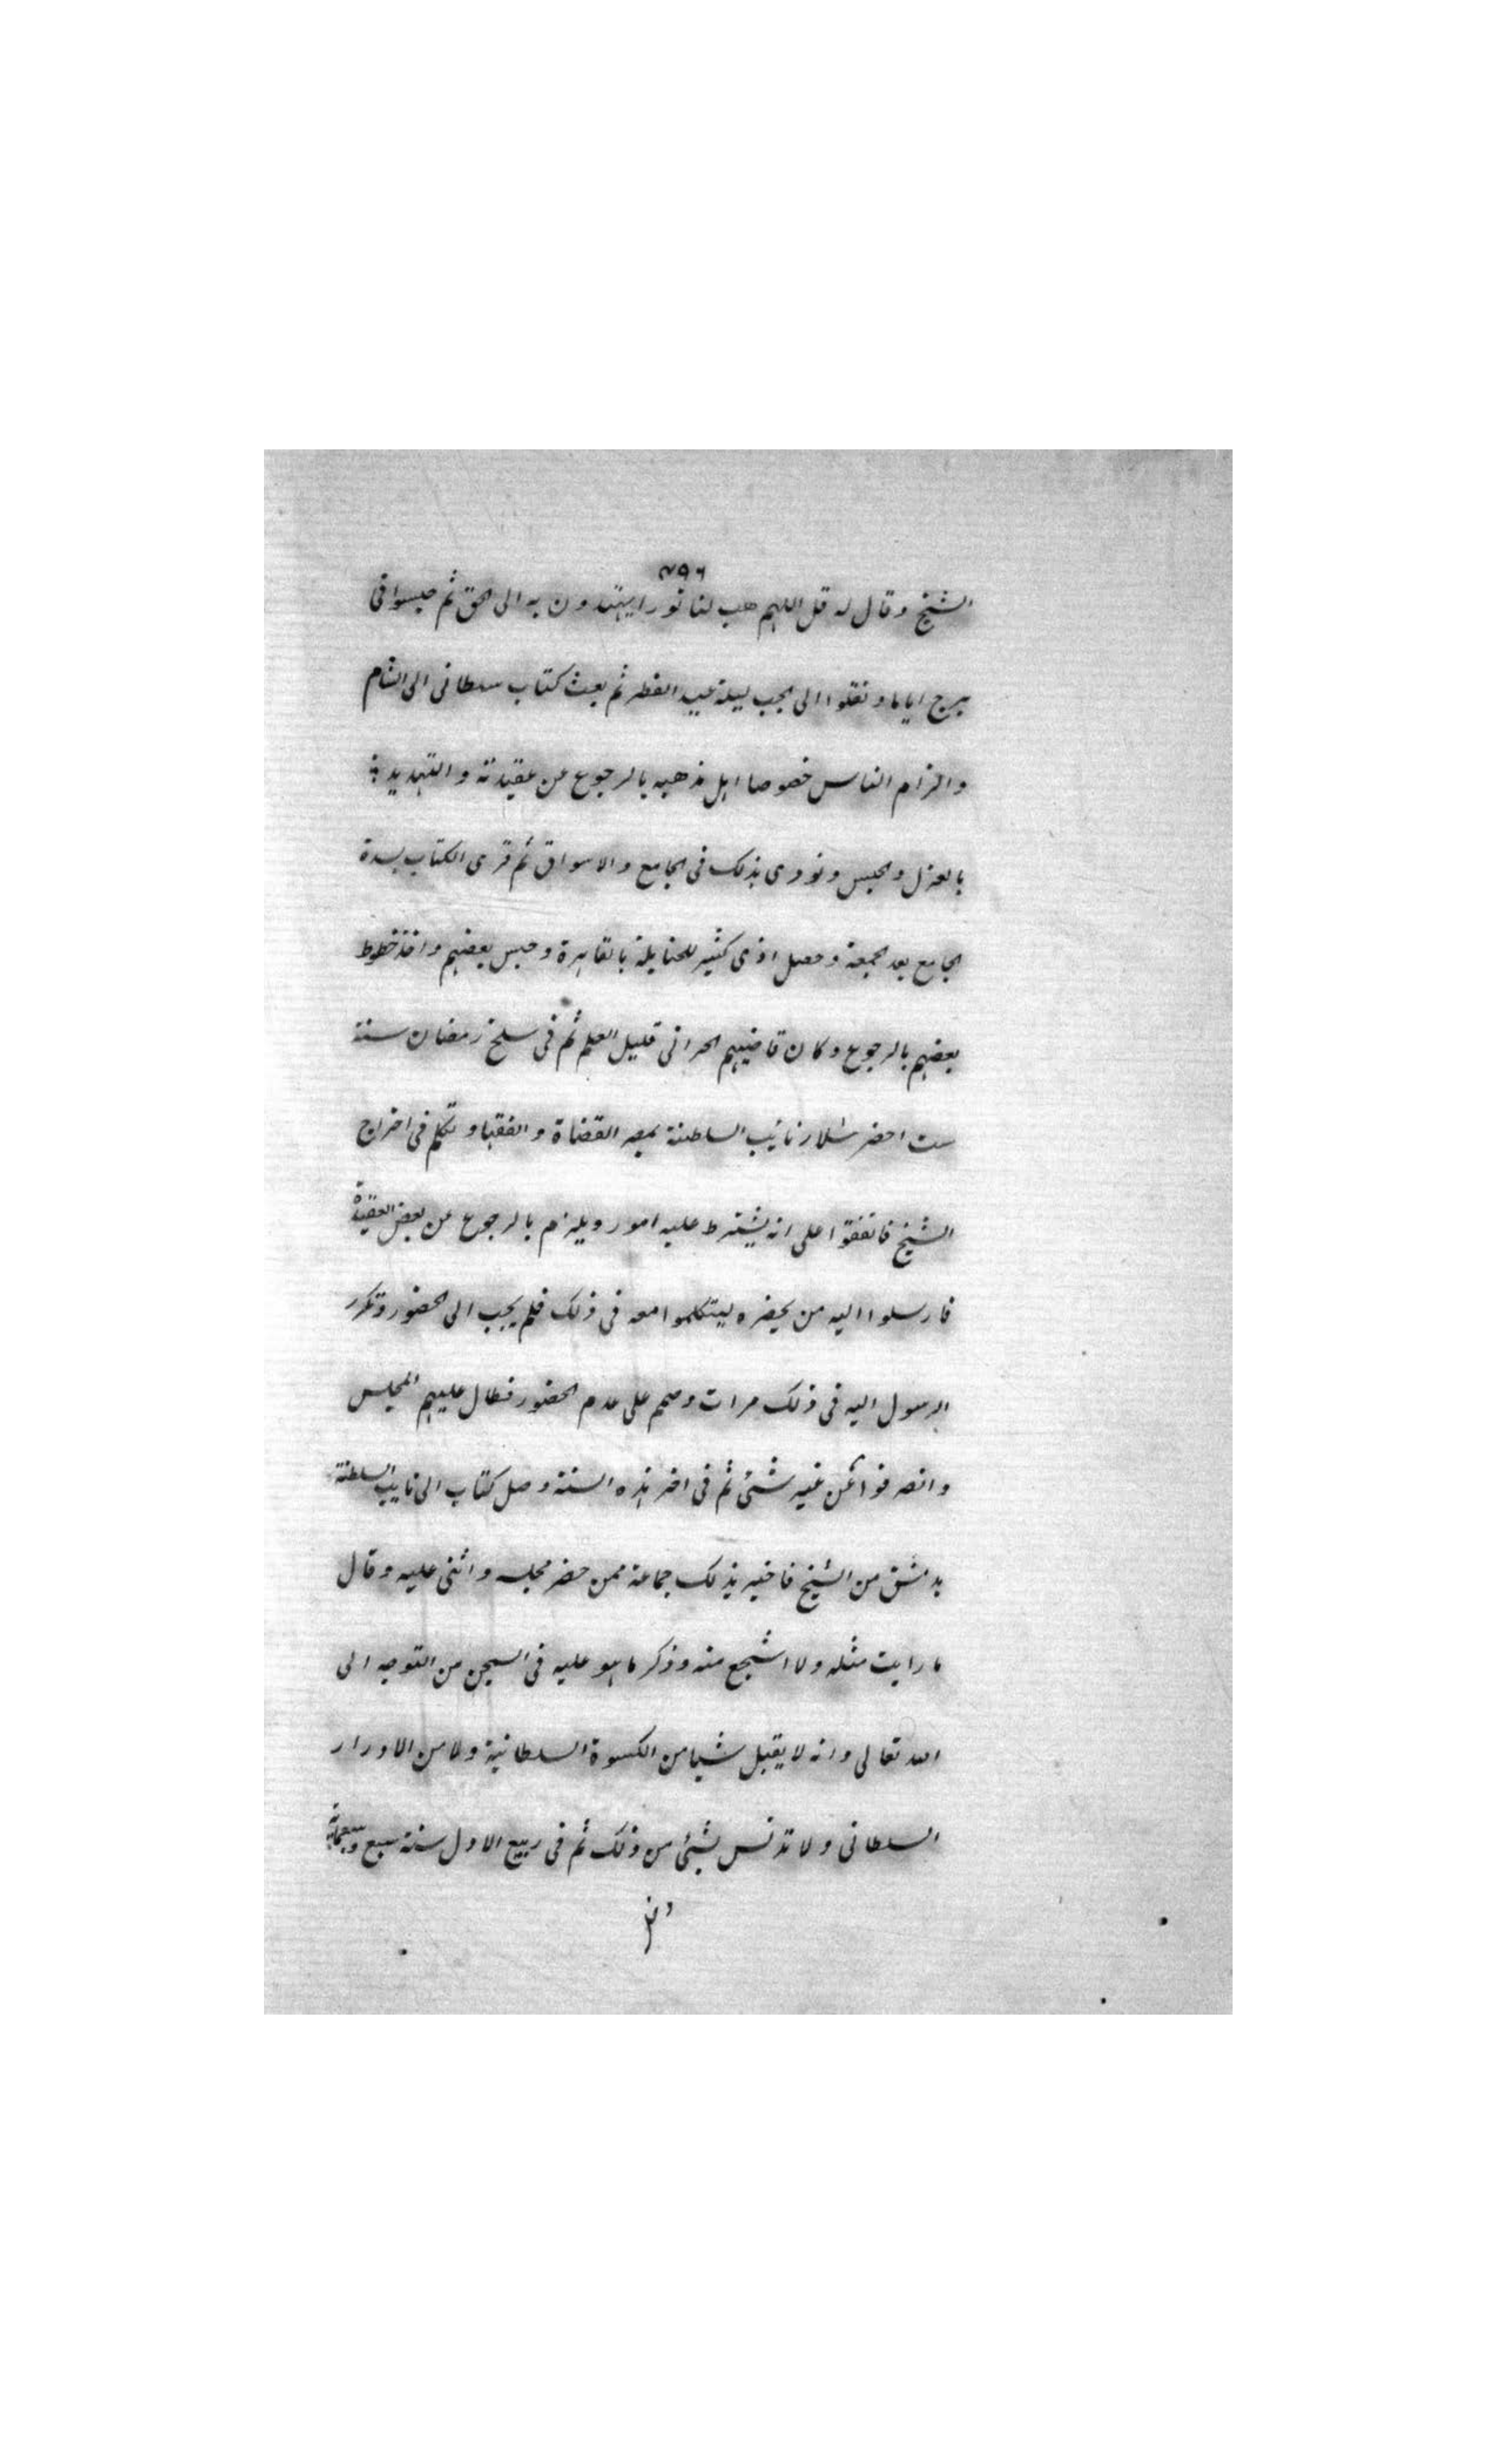 ٧٩٦
الشيخ وقال له قل اللهم هب لنا نورا يهتدون به الى الحق ثم حبسوا فى
برج اياما ونقلوا الى الجب ليلة عيد الفطر ثم بعث كتاب سلطانى الى الشام
والزام الناس خصوصا اهل مذهبه بالرجوع عن عقيدته والتهديد
بالعزل والحبس ونودى بذلك فى الجامع والاسواق ثم قرى الكتاب بسدة
الجامع بعد الجمعة وحصل اذى كثير للحنابلة بالقاهرة وحبس بعضهم واخذ خطوط
بعضهم بالرجوع وكان قاضيهم الحرانى قليل العلم ثم فى سلخ رمضان سنة
ست احضر سلار نائب السلطنة بمصر القضاة والفقها وتكلم فى اخراج
الشيخ فاتفقوا على انه يشترط عليه امور ويلزم بالرجوع عن بعض العقيدة
فارسلوا اليه من يحضره ليتكلموا معه فى ذلك فلم يجب الى الحضور وتكرر
الرسول اليه فى ذلك مرات وصمم على عدم الحضور فطال عليهم المجلس
وانصرفوا عن غير شئ ثم فى اخر هذه السنة وصل كتاب الى نايب السلطنة
بدمشق من الشيخ فاخبر بذلك جماعة ممن حضر مجلسه واثنى عليه وقال
ما رايت مثله ولا اشجع منه وذكر ما هو عليه فى السجن من التوجه الى
الله تعالى وانه لا يقبل شيا من الكسوة السلطانية ولا من الادرار
السلطانى ولا تدنس بشئ من ذلك ثم فى ربيع الاول سنة سبع وسبعمائة